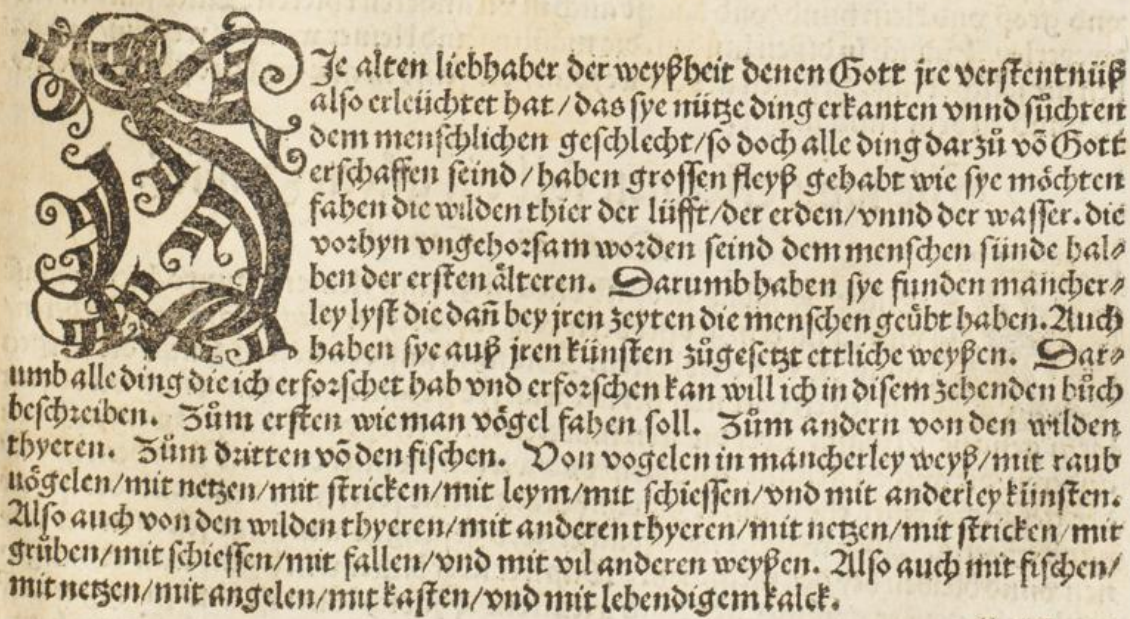 DJe alten liebhaber der weyßheit denen Gott jre verstentnüß
also erleüchtet hat / das sye nütze ding erkanten vnnd sůchten
dem menschlichen geschlecht / so doch alle ding darzů võ Gott
erschaffen seind / haben grossen fleyß gehabt wie sye möchten
fahen die wilden thier der lüfft / der erden / vnnd der wasser. die
vorhyn vngehorsam worden seind dem menschen sünde hal⸗
ben der ersten älteren. Darumb haben sye funden mancher⸗
ley lyst die dañ bey jren zeyten die menschen geübt haben. Auch
haben sye auß jren künsten zůgesetzt ettliche weyßen. Dar⸗
umb alle ding die ich erforschet hab vnd erforschen kan will ich in disem zehenden bůch
beschreiben. Zům ersten wie man vögel fahen soll. Zům andern von den wilden
thyeren. Zům dritten võ den fischen. Von vogelen in mancherley weyß / mit raub
uögelen / mit netzen / mit stricken / mit leym / mit schiessen / vnd mit anderley künsten.
Also auch von den wilden thyeren / mit anderen thyeren / mit netzen / mit stricken / mit
grůben / mit schiessen / mit fallen / vnd mit vil anderen weyßen. Also auch mit fischen /
mit netzen / mit angelen / mit kasten / vnd mit lebendigem kalck.